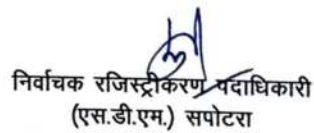 निर्वाचक रजिस्ट्रीकरण पदाधिकारी
(एस.डी.एम.) सपोटरा